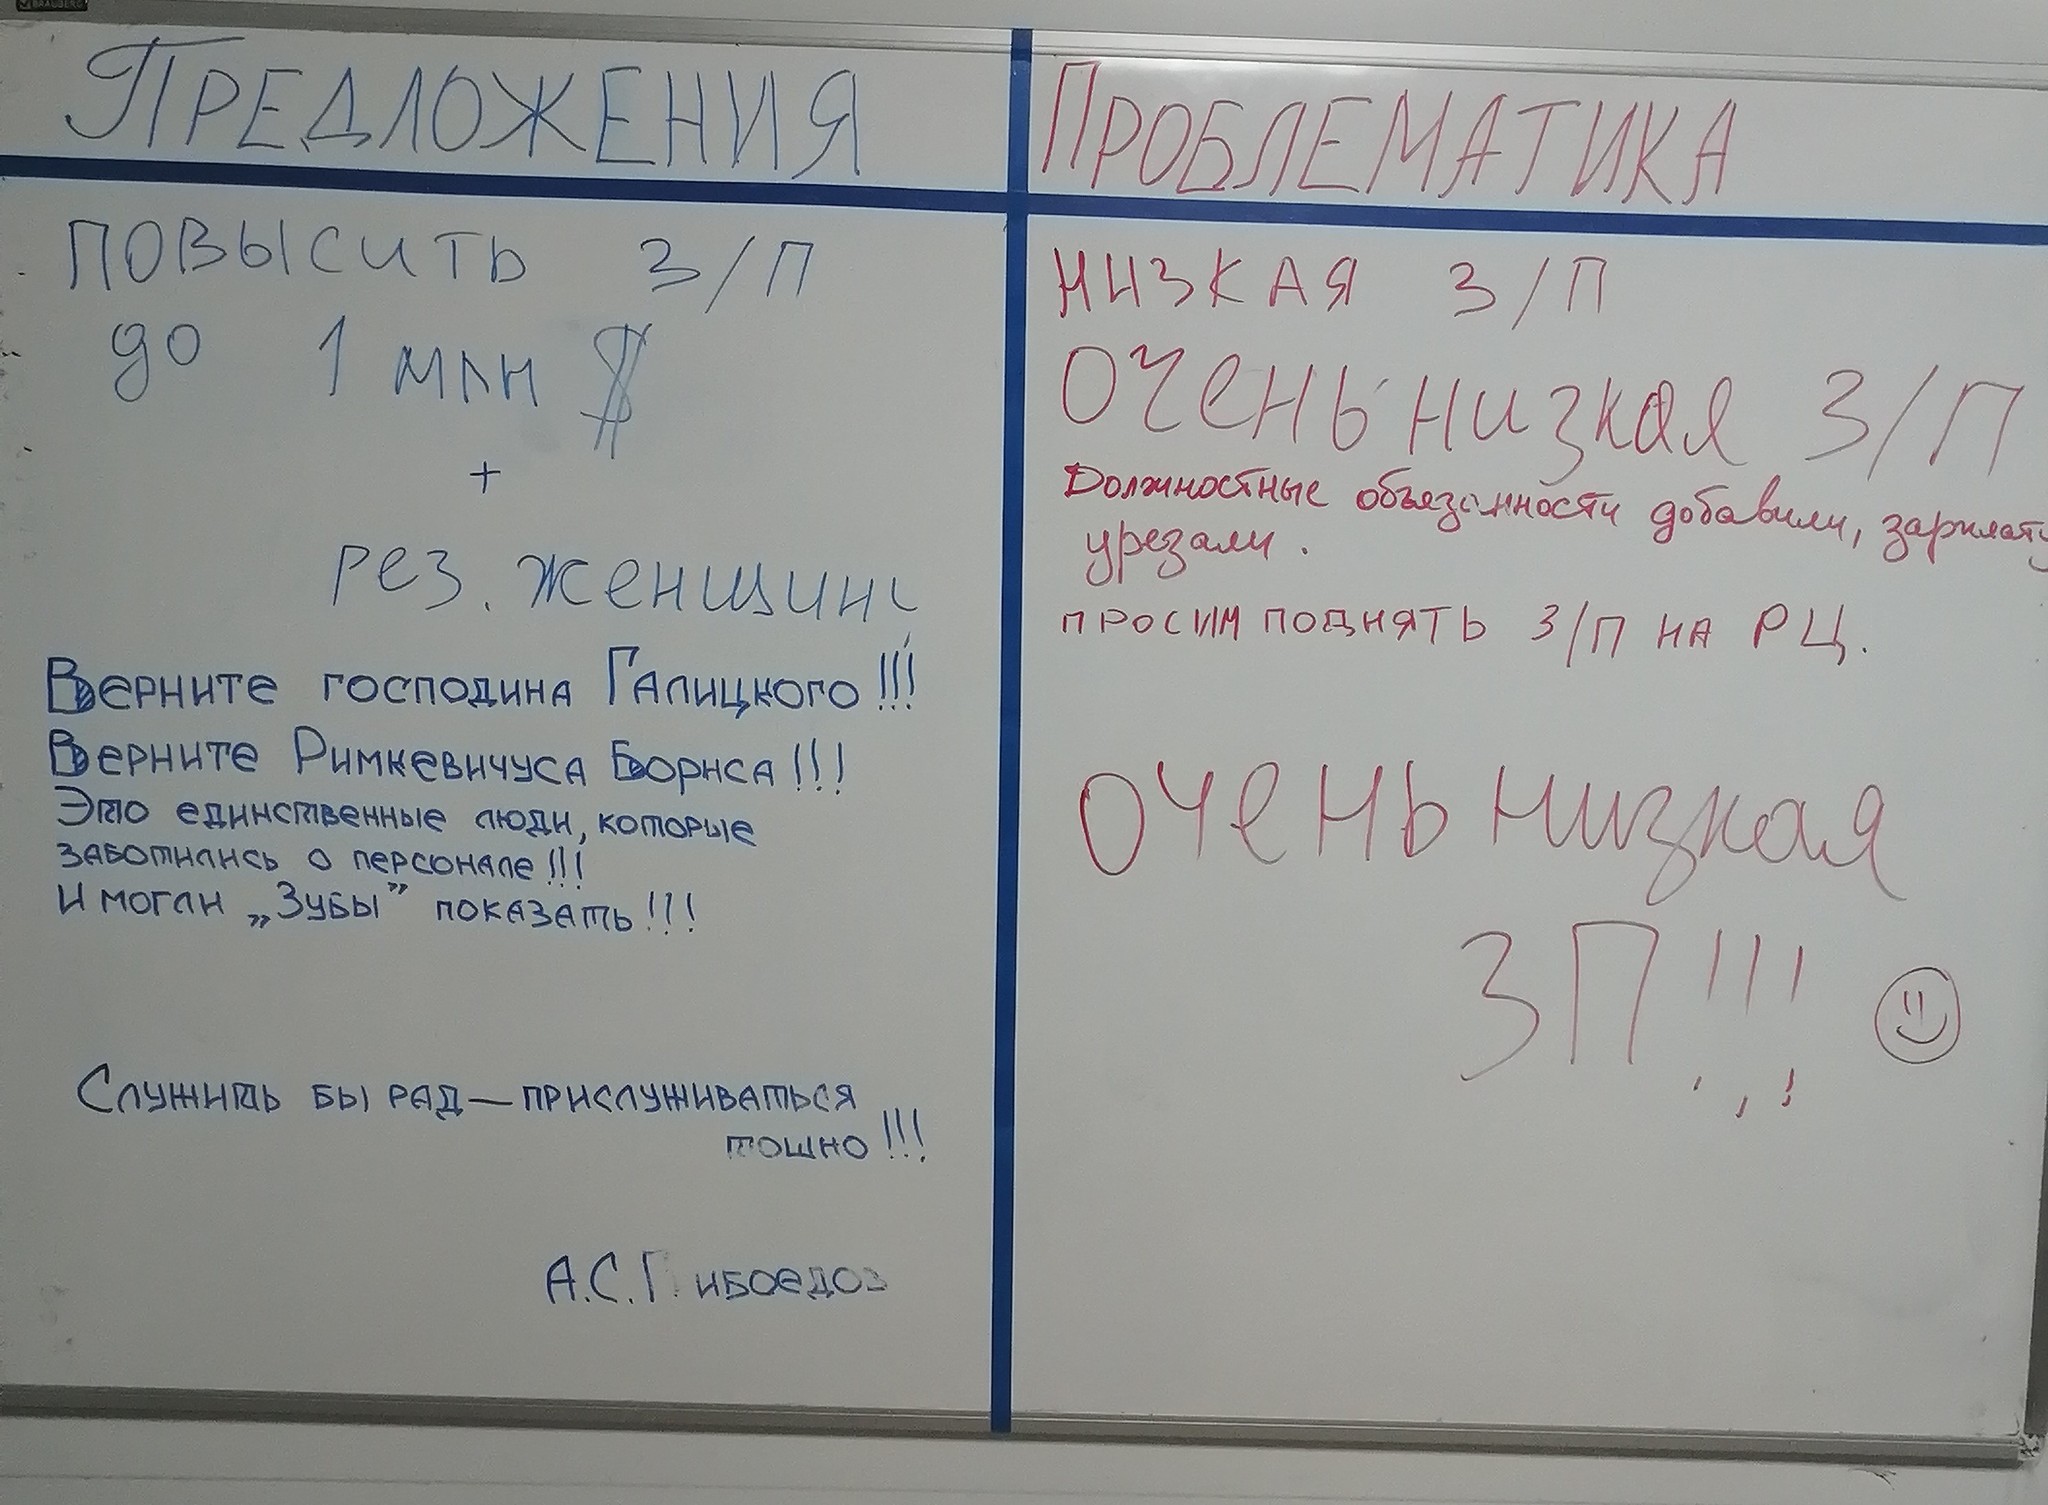 BRAUBERG
ПРЕДЛОЖЕНИЯ
ПОВЫСИТЬ З/П
до 1 млн $
+
рез. женщины
Верните господина Галицкого!!!
Верните Римкевичуса Бориса!!!
Это единственные люди, которые
заботились о персонале!!!
И могли „Зубы” показать!!!
Служить бы рад — прислуживаться
тошно!!!
А.С.Г ибоедов
ПРОБЛЕМАТИКА
НИЗКАЯ З/П
Очень низкая З/П
Должностные обьязанности добавили, зарплату
урезали.
ПРОСИМ ПОДНЯТЬ З/П НА РЦ.
Очень низкая
ЗП!!!